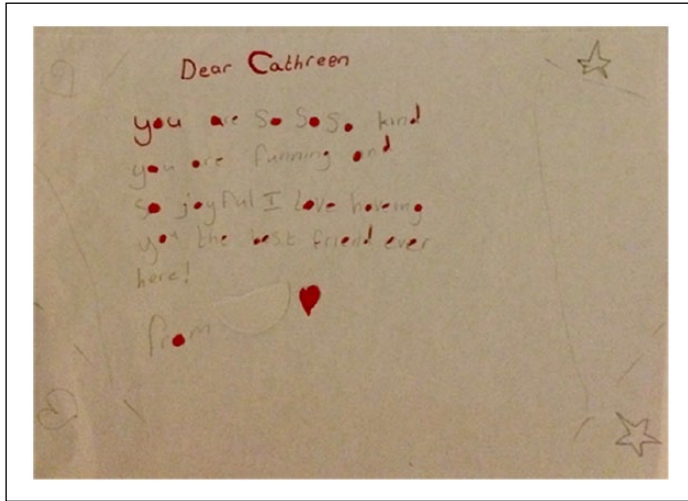 Dear Cathreen
you are so so so kind
you are funning and
so joyful I love haveing
you the best friend ever
here!
from